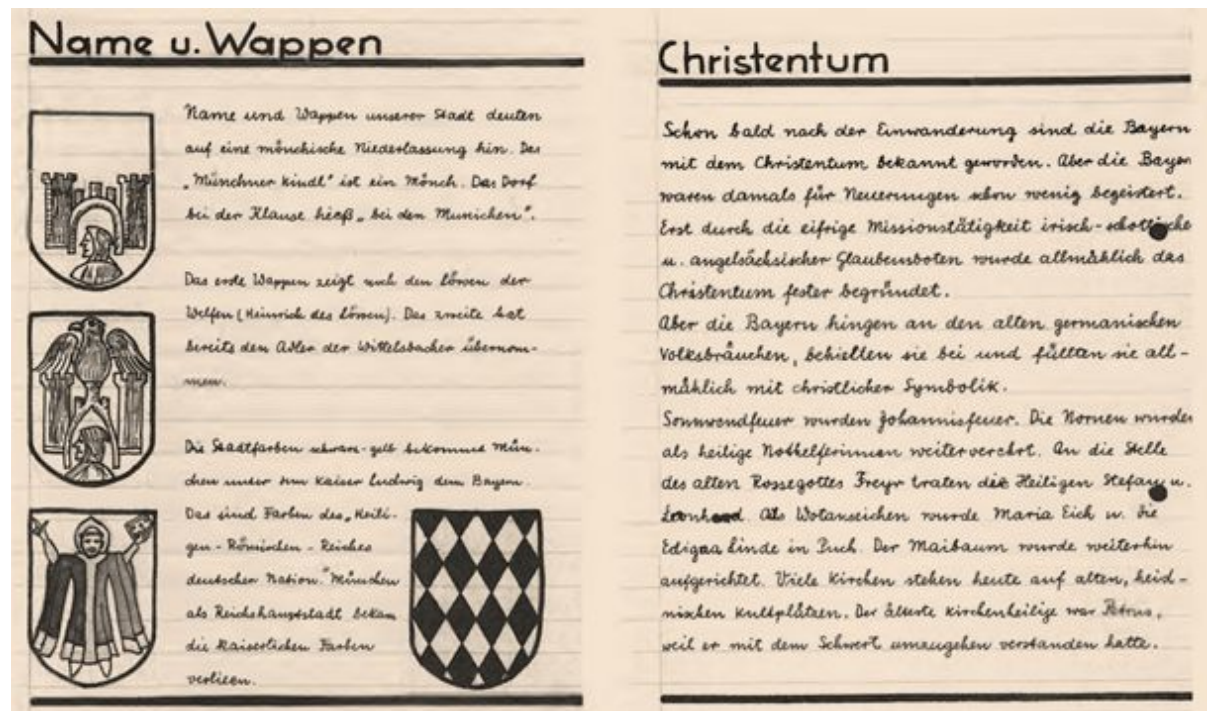 Name u. Wappen
Name und Wappen unserer Stadt deuten
auf eine mönchische Niederlassung hin. Das
„Münchner Kindl" ist ein Mönch. Das Dorf
bei der Klause hieß „bei den Munichen".
Das erste Wappen zeigt noch den Löwen der
Welfen (Heinrich des Löwen). Das zweite hat
bereits den Adler der Wittelsbacher übernom-
men.
Die Stadtfarben schwarz-gelb bekommt Mün-
chen unter dem Kaiser Ludwig dem Bayern.
Das sind Farben des „Heili-
gen-Römischen-Reiches
deutscher Nation." München
als Reichshauptstadt bekam
die kaiserlichen Farben
verliehen.
Christentum
Schon bald nach der Einwanderung sind die Bayern
mit dem Christentum bekannt geworden. Aber die Bayern
waren damals für Neuerungen schon wenig begeistert.
Erst durch die eifrige Missionstätigkeit irisch-schottische
u. angelsächsischer Glaubensboten wurde allmählich das
Christentum fester begründet.
Aber die Bayern hingen an den alten germanischen
Volksbräuchen, behielten sie bei und füllten sie all-
mählich mit christlicher Symbolik.
Sonnwendfeuer wurden Johannisfeuer. Die Nornen wurden
als heilige Nothelferinnen weiterverehrt. An die Stelle
des alten Rossegottes Freyr traten die Heiligen Stefan u.
Leonhard. Als Wotanseichen wurde Maria Eich u. die
Edigna Linde in Puch. Der Maibaum wurde weiterhin
aufgerichtet. Viele Kirchen stehen heute auf alten, heid-
nischen Kultplätzen. Der älteste Kirchenheilige war Petrus,
weil er mit dem Schwert umzugehen verstanden hatte.